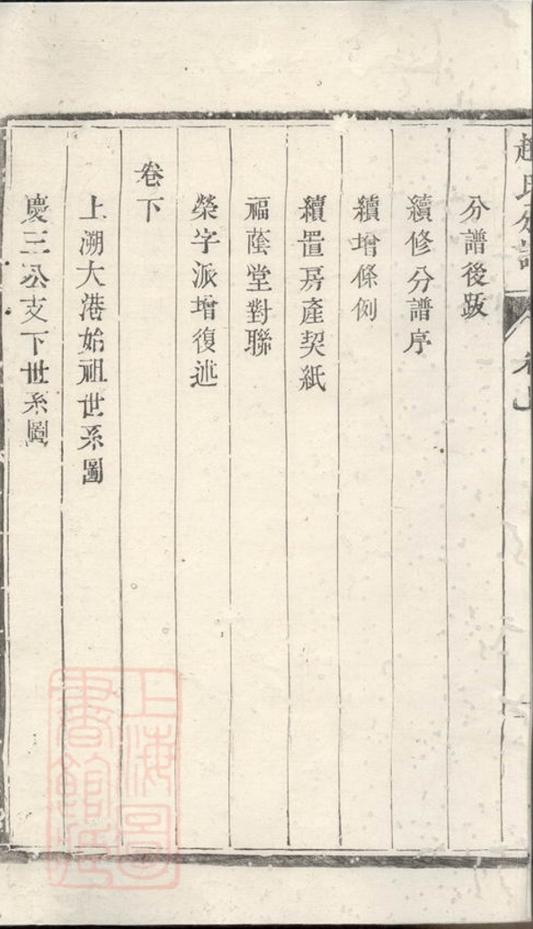 趙氏分譜
卷上
分譜後跋
續修分譜序
續增條例
續置房產契紙
福蔭堂對聯
榮字派增復述
卷下
上溯大港始祖世系圖
慶三公支下世系圖
上海圖書館藏